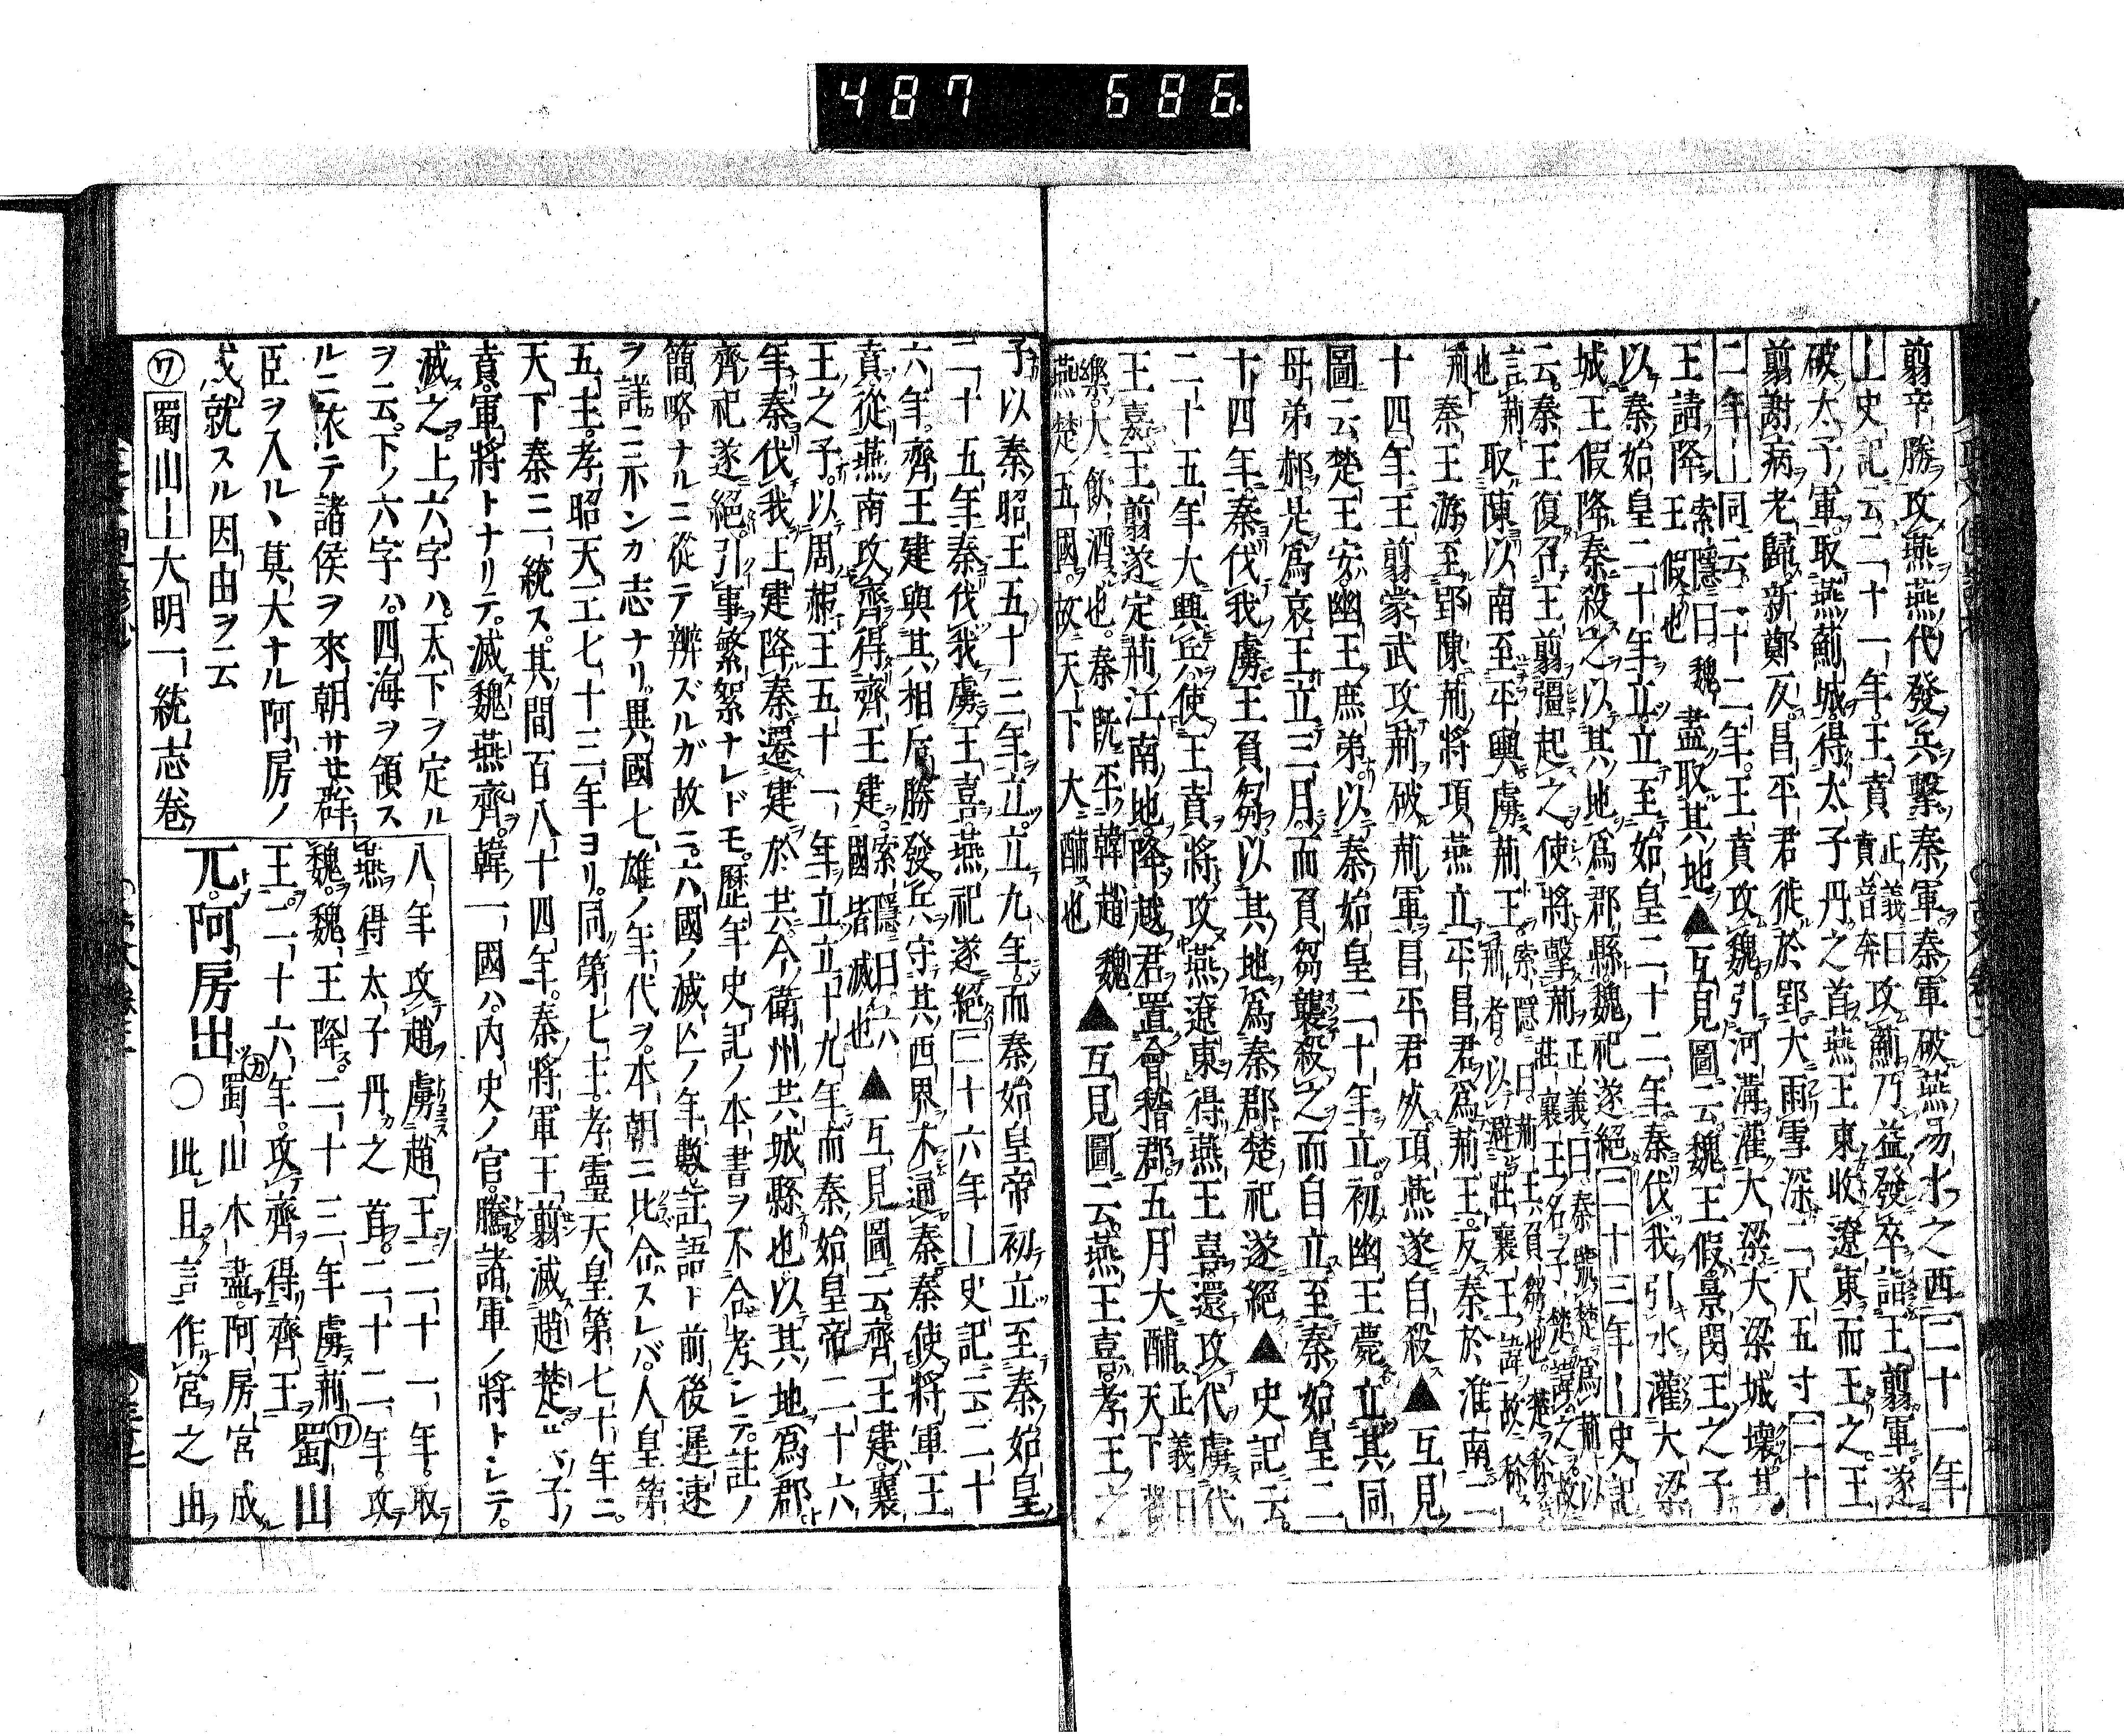 487 686.
翦辛勝攻燕燕代發兵擊秦軍秦軍破燕易水之西二十一年
｜史記云二十一年王賁正義曰賁音奔攻薊乃益發卒詣王翦軍遂
破太子軍取燕薊城得太子丹之首燕王東收遼東而王之王
翦謝病老歸新鄭反昌平君徙於郢大雨雪深二尺五寸二十
二年｜同云二十二年王賁攻魏引河溝灌大梁大梁城壞其
王請降索隱曰魏王假也盡取其地▲互見圖云魏王假景閔王之子
以秦始皇二十年立立至始皇二十二年秦伐我引水灌大梁
城王假降秦殺之以其地爲郡縣魏祀遂絕二十三年｜史記
云秦王復召王翦彊起之使將擊荊正義曰秦號楚爲荊以莊襄王名子楚諱之故
言荊也取陳以南至平輿虜荊王索隱曰荊王負芻也楚稱荊者以避莊襄王諱故稱
荊秦王游至郢陳荊將項燕立平昌君爲荊王反秦於淮南二
十四年王翦蒙武攻荊破荊軍昌平君死項燕遂自殺▲互見
圖云楚王安幽王庶弟以秦始皇二十年立初幽王薨立其同
母弟郝是爲哀王立三月而負芻襲殺之而自立至秦始皇二
十四年秦伐我虜王負芻以其地爲秦郡楚祀遂絕▲史記云
二十五年大興兵使王賁將攻燕遼東得燕王喜還攻代虜代
王嘉王翦遂定荊江南地降越君置會稽郡五月大酺正義曰天下
樂大飮酒也秦既平韓趙魏燕楚五國故天下大酺也▲互見圖云燕王喜孝王之
子以秦昭王五十三年立立九年而秦始皇帝初立至秦始皇
二十五年秦伐我虜王喜燕祀遂絕二十六年｜史記云二十
六年齊王建與其相后勝發兵守其西界不通秦秦使將軍王
賁從燕南攻齊得齊王建索隱曰六國皆滅也▲互見圖云齊王建襄
王之子以周赧王五十一年立立十九年而秦始皇帝二十六
年秦伐我上建降秦遷建於共今衞州共城縣也以其地爲郡
齊祀遂絕引事繁絮ナレドモ歷年史記ノ本書ヲ不合考シテ註ノ
簡略ナルニ從テ辨ズルガ故ニ六國ノ滅亡ノ年數註語ト前後遲速
ヲ詳ニ不ンカ志ナリ異國七雄ノ年代ヲ本朝ニ比佥スレバ人皇第
五主孝昭天王七十三年ヨリ同第七主孝靈天皇第七十年ニ
天下秦ニ一統ス其間百八十四年秦將軍王翦滅趙楚其子
賁軍將トナリテ滅魏燕齊韓一國ハ內史ノ官騰諸軍ノ將トシテ
滅之上六字ハ太下ヲ定ル
ヲ云下ノ六字ハ四海ヲ領ス
ルニ依テ諸侯ヲ來朝サセ群
臣ヲ入ルヽ莫大ナル阿房ノ
成就スル因由ヲ云
㋻蜀山｜大明一統志卷
八年攻趙虜趙王二十一年取
燕得太子丹之首二十二年攻
魏魏王降二十三年虜荊
王二十六年攻齊得齊王蜀山㋻
兀阿房出㋕蜀山木盡阿房宮成
○此且言作宮之由